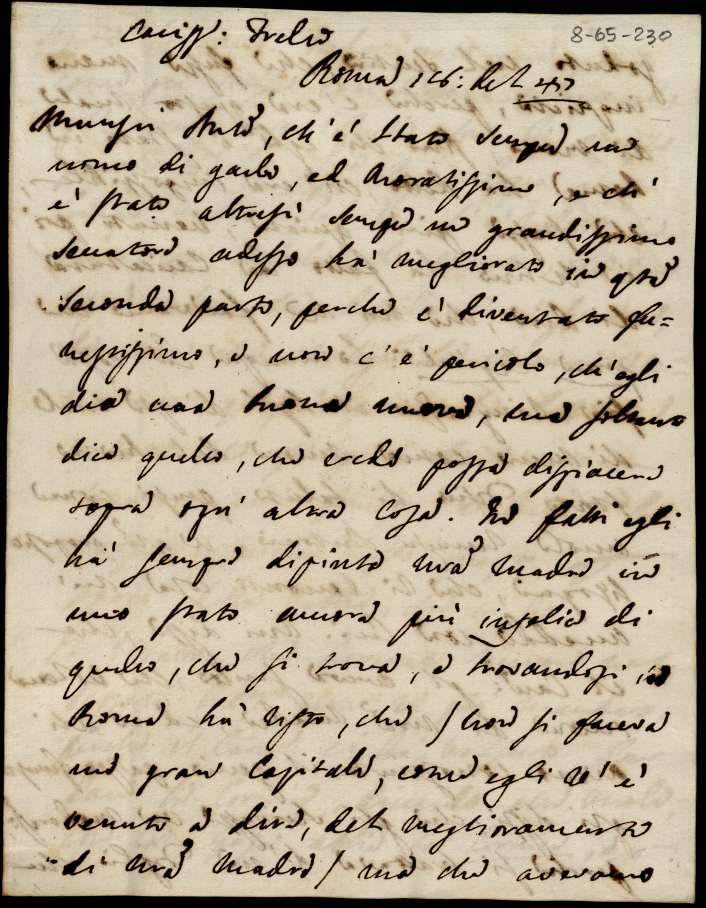 8-65-230
Cariss: Frelo
Roma 16: del 47
ch'è stato sempre un
uomo di garbo, ed onoratissimo, e ch'
è stato altresì sempre un grandissimo
seccatore adesso hà megliorato in qta
seconda parte, perche è diventato fu=
nestissimo, e non c'è pericolo, ch'egli
dia una buona nuova, ma soltanto
dica quello, che crede possa dispiacere
sopra ogn' altra cosa. In fatti egli
hà sempre dipinto nra madre in
uno stato ancora più infelice di
quello, che si trova, e trovandosi in
Roma hà visto, che / non si faceva
un gran capitale, come egli vi è
venuto a dire, del meglioramento
di nra madre / ma che avevamo